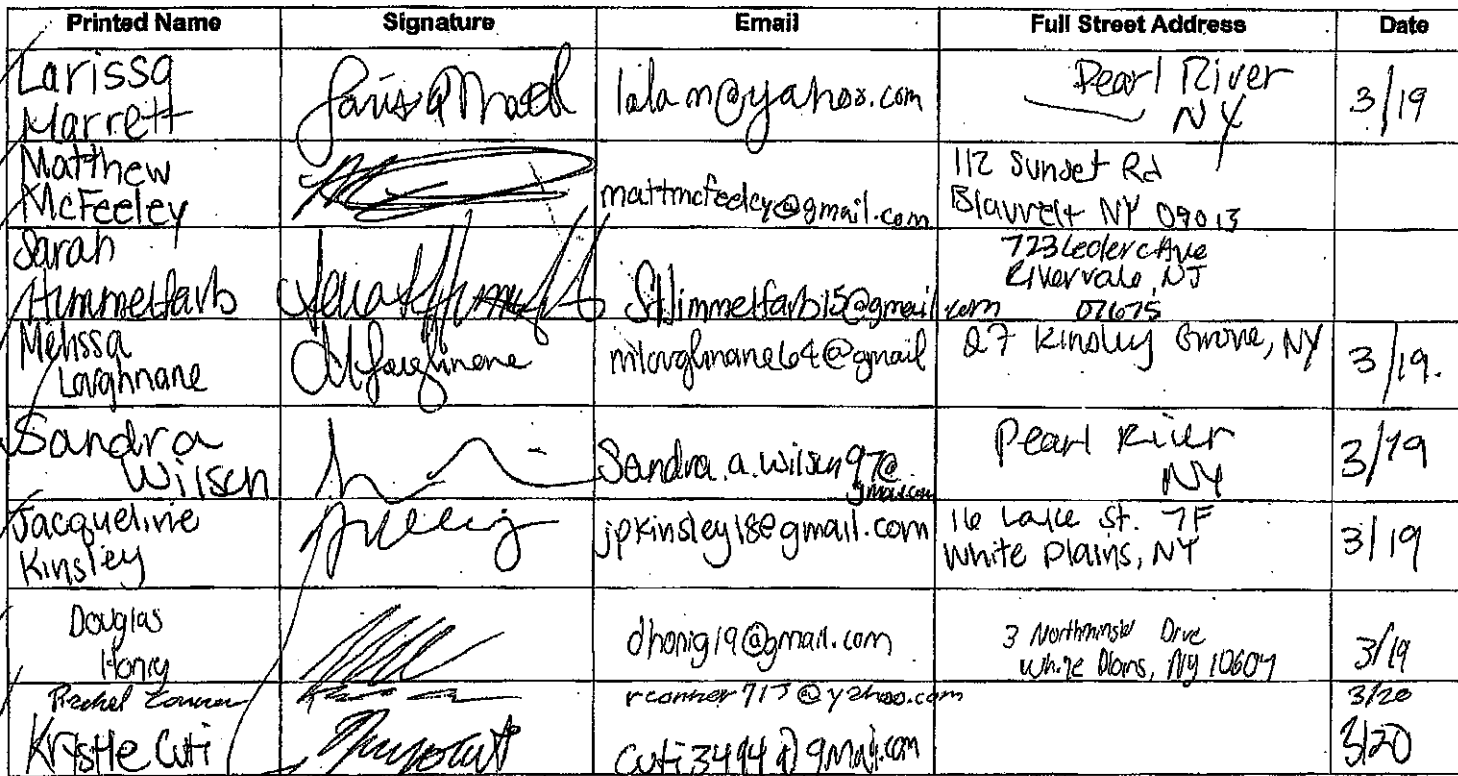 Printed Name Signature Email Full Street Address Date
Larissa Marrett lala m@yahoo.com Pearl River NY 3/19
Matthew McFeeley mattmcfeeley@gmail.com 112 Sunset Rd Blauvelt NY 09013
Sarah Himmelfarb SHimmelfarb15@gmail.com 723 Leclerc Ave Rivervale, NJ 07675
Melissa Loughnane mloughnane64@gmail 27 Kinsley Grove, NY 3/19.
Sandra Wilson Sandra.a.wilson97@gmail.com Pearl River NY 3/19
Jacqueline Kinsley jpkinsley18@gmail.com 16 Lake St. 7F White Plains, NY 3/19
Douglas Honig dhonig19@gmail.com 3 Northminster Drive White Plains, NY 10604 3/19
Rachel Conner rconner715@yahoo.com 3/20
Krystle Cuti cuti3494@gmail.com 3/20